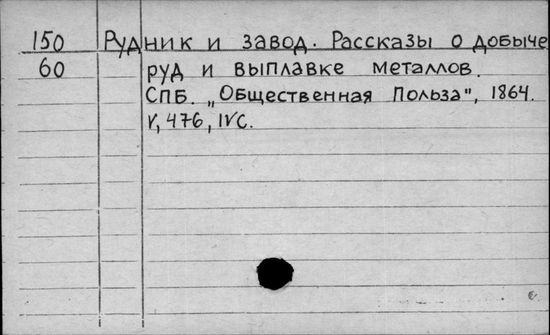 150 Рудник и завод. Рассказы о добыче
60 руд и выплавке металлов.
СПБ. „Общественная Польза", 1864.
V, 476, IV с.